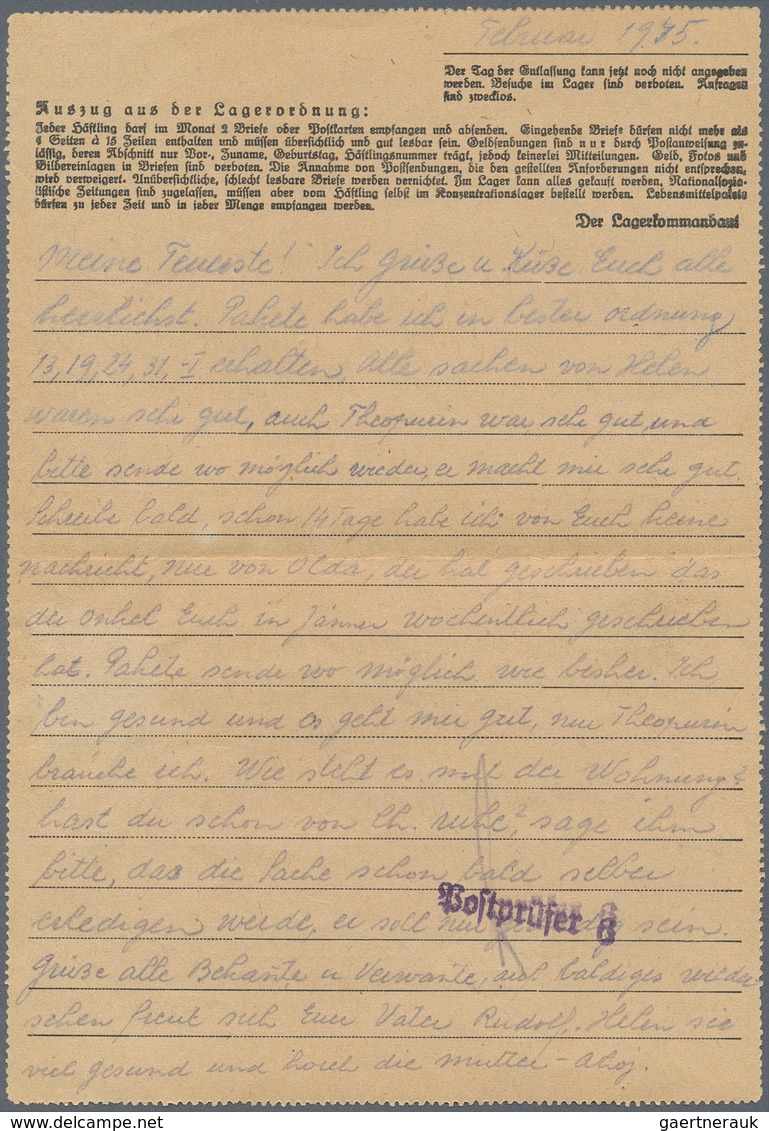 Februar 1945.
Der Tag der Entlassung kann jetzt noch nicht angegeben
werden. Besuche im Lager sind verboten. Anfragen
sind zwecklos.
Auszug aus der Lagerordnung:
Jeder Häftling darf im Monat 2 Briefe oder Postkarten empfangen und absenden. Eingehende Briefe dürfen nicht mehr als
4 Seiten à 15 Zeilen enthalten und müssen übersichtlich und gut lesbar sein. Geldsendungen sind nur durch Postanweisung zu-
lässig, deren Abschnitt nur Vor-, Zuname, Geburtstag, Häftlingsnummer trägt, jedoch keinerlei Mitteilungen. Geld, Fotos und
Bildereinlagen in Briefen sind verboten. Die Annahme von Postsendungen, die den gestellten Anforderungen nicht entsprechen,
wird verweigert. Unübersichtliche, schlecht lesbare Briefe werden vernichtet. Im Lager kann alles gekauft werden, Nationalsozia-
listische Zeitungen sind zugelassen, müssen aber vom Häftling selbst im Konzentrationslager bestellt werden. Lebensmittelpakete
dürfen zu jeder Zeit und in jeder Menge empfangen werden.
Der Lagerkommandant
Meine Teuerste! Ich Grüße u Küße Euch alle
herzlichst. Pakete habe ich in bester ordnung
13, 19, 24, 31, -I erhalten, Alle sachen von Helen
waren sehr gut, auch Theopurin war sehr gut, und
bitte sende wo möglich wieder, er macht mir sehr gut.
Schreibe bald, schon 14 Tage habe ich von Euch keene
nachricht, nur von Olda, der hat geschrieben das
der onkel Euch in Jänner wochentlich geschrieben
hat. Pakete sende wo möglich wie bisher. Ich
bin gesund und es geht mir gut, nur Theopurin
brauche ich. Wie steht es mit der Wohnung?
hast du schon von Ch. ruhe? sage ihm
bitte, das die Sache schon bald selber
erledigen werde, er soll nur sein.
Postprüfer 8
Grüße alle Bekante u Verwante, auf baldiges wieder
sehen freut sich Euer Vater Rudolf. Helen sie
viel gesund und horet die mutter - Ahoj.
gaertnerauk
delcampe.net